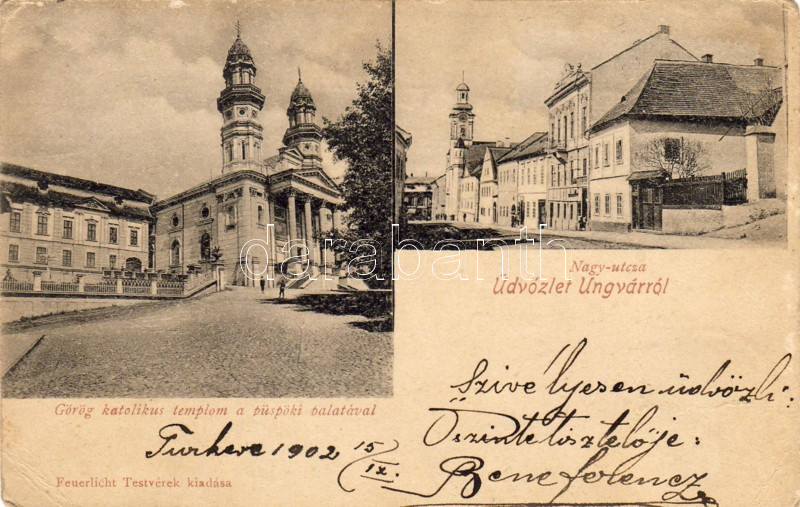 Nagy-utcza
Üdvözlet Ungvárról
Görög katolikus templom a püspöki palatával
Szivélyesen üdvözli:
Őszinte tisztelője:
1902 15/IX
Bene ferencz
Feuerlicht Testvérek kiadása
darabanth.com